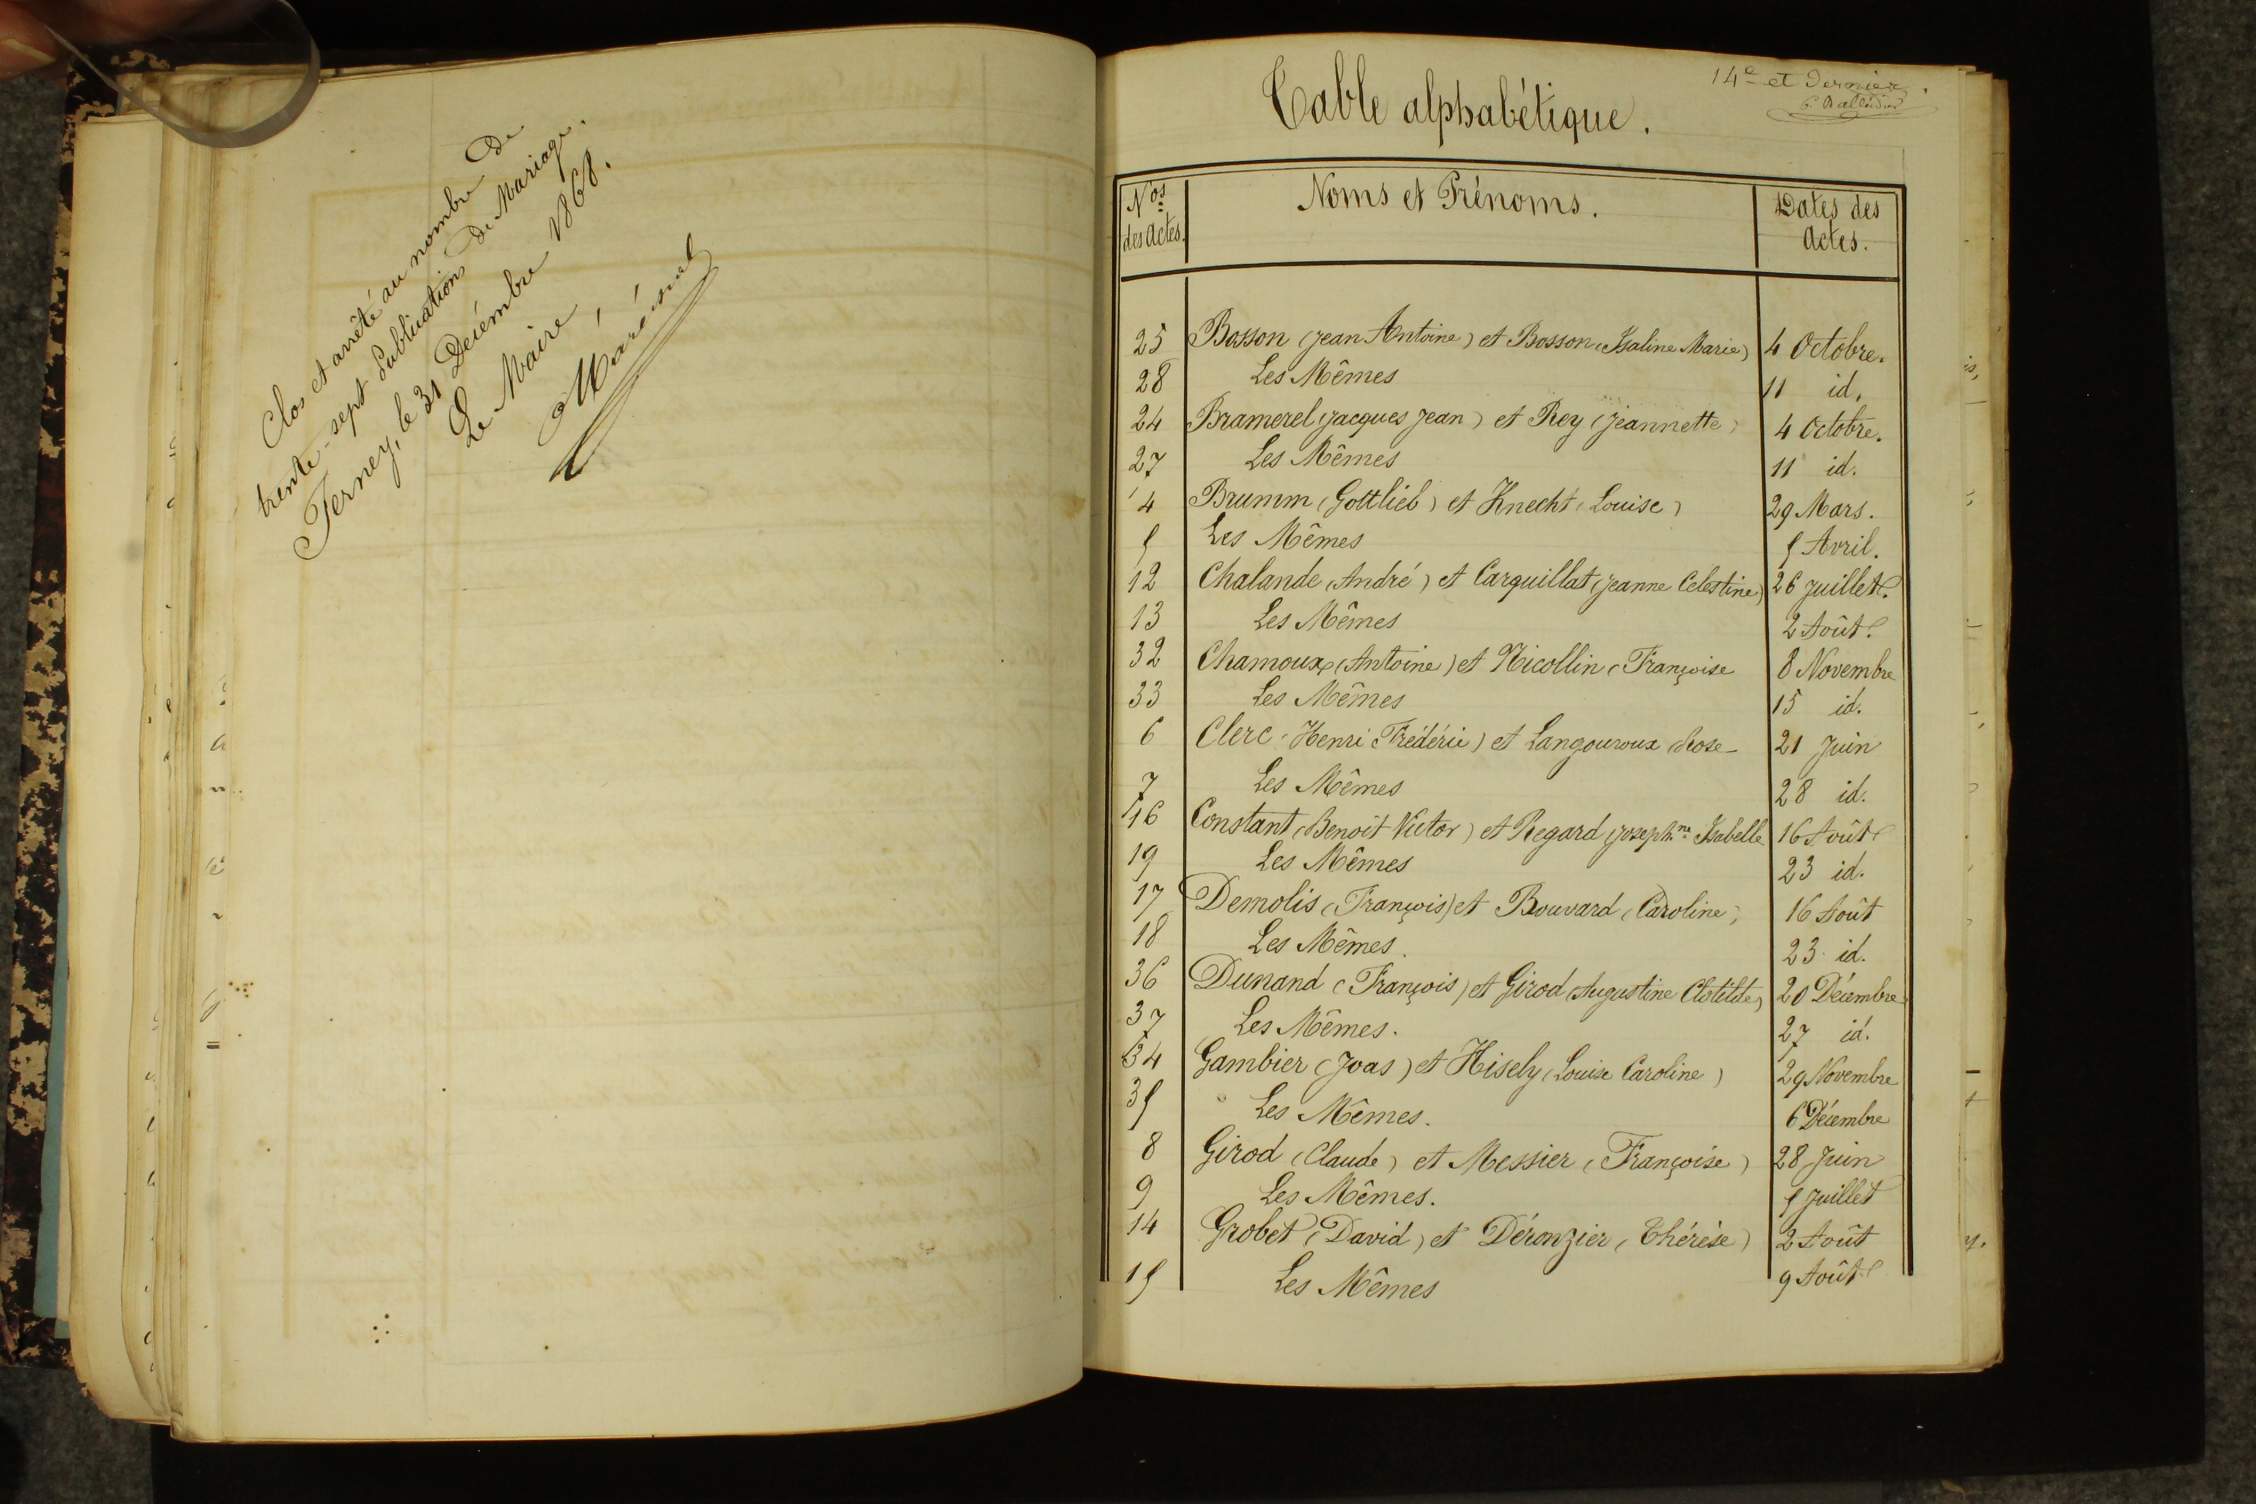 Clos et arrêté au nombre de
trente-sept Publications de Mariage.
Ferney, le 31 Décembre 1868.
Le Maire,
14e et dernier.
Table alphabétique.
Nos des Actes. Noms et Prénoms. Dates des Actes.
25 Bosson (Jean Antoine) et Bosson (Isaline Marie) 4 Octobre.
28 Les Mêmes 11 id.
24 Bramerel (Jacques Jean) et Rey (Jeannette) 4 Octobre.
27 Les Mêmes 11 id.
4 Brumm (Gottlieb) et Knecht (Louise) 29 Mars.
5 Les Mêmes 5 Avril.
12 Chalande (André) et Carquillat (Jeanne Celestine) 26 Juillet.
13 Les Mêmes 2 Août.
32 Chamoux (Antoine) et Nicollin (Françoise 8 Novembre
33 Les Mêmes 15 id.
6 Clerc (Henri Frédéric) et Langouroux Rose 21 Juin
7 Les Mêmes 28 id.
16 Constant (Benoit Victor) et Regard Joseph.ne Isabelle 16 Août
19 Les Mêmes 23 id.
17 Demolis (François) et Bouvard (Caroline) 16 Août
18 Les Mêmes. 23 id.
36 Dunand (François) et Girod (Augustine Clotilde) 20 Décembre
37 Les Mêmes. 27 id.
34 Gambier (Joas) et Hisely (Louise Caroline) 29 Novembre
35 Les Mêmes. 6 Décembre
8 Girod (Claude) et Messier (Françoise) 28 Juin
9 Les Mêmes. 5 Juillet
14 Grobet (David) et Déronzier (Thérèse) 2 Août
15 Les Mêmes 9 Août